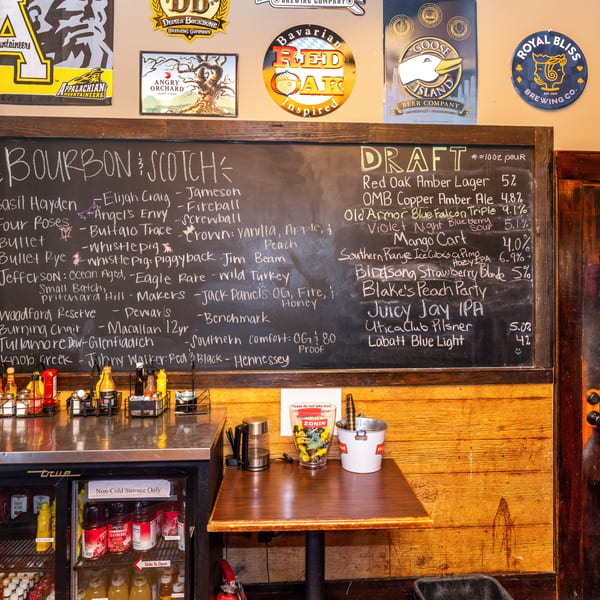 A
Appalachian
MOUNTAINEERS
DB
DEVILS BACKBONE
BREWING COMPANY
BREWING COMPANY
ANGRY
ORCHARD
Bavarian
RED
OAK
Inspired
GOOSE
ISLAND
BEER COMPANY
ROYAL BLISS
BREWING CO.
BOURBON & SCOTCH
Basil Hayden - Elijah Craig - Jameson
Four Roses - Angel's Envy - Fireball
Bullet - Buffalo Trace - Screwball
Bullet Rye - Whistlepig - Crown: Vanilla, Apple, &
Peach
- Whistlepig: piggyback - Jim Beam
Jefferson: Ocean Aged, - Eagle Rare - Wild Turkey
Small Batch,
Pritchard Hill - Makers - Jack Daniels OG, Fire, &
Honey
Woodford Reserve - Dewars - Benchmark
Burning Chair - Macallan 12yr
Tullamore Dew - Glenfiddich - Southern Comfort: OG & 80
Proof
Knob Creek - Johny Walker Red & Black - Hennessy
DRAFT * = 10oz pour
Red Oak Amber Lager 5%
OMB Copper Amber Ale 4.8%
Old Armor Blue Falcon Triple 9.1%
Violet Night Blueberry Sour 5.1%
Mango Cart 4.0%
Southern Range Ice Cubes a Pimp Hazy IPA 6.9%
Birdsong Strawberry Blonde 5%
Blake's Peach Party
Juicy Jay IPA
Utica Club Pilsner 5.0%
Labatt Blue Light 4%
ZONIN
true
Non-Cold Storage Only
Slide To Open